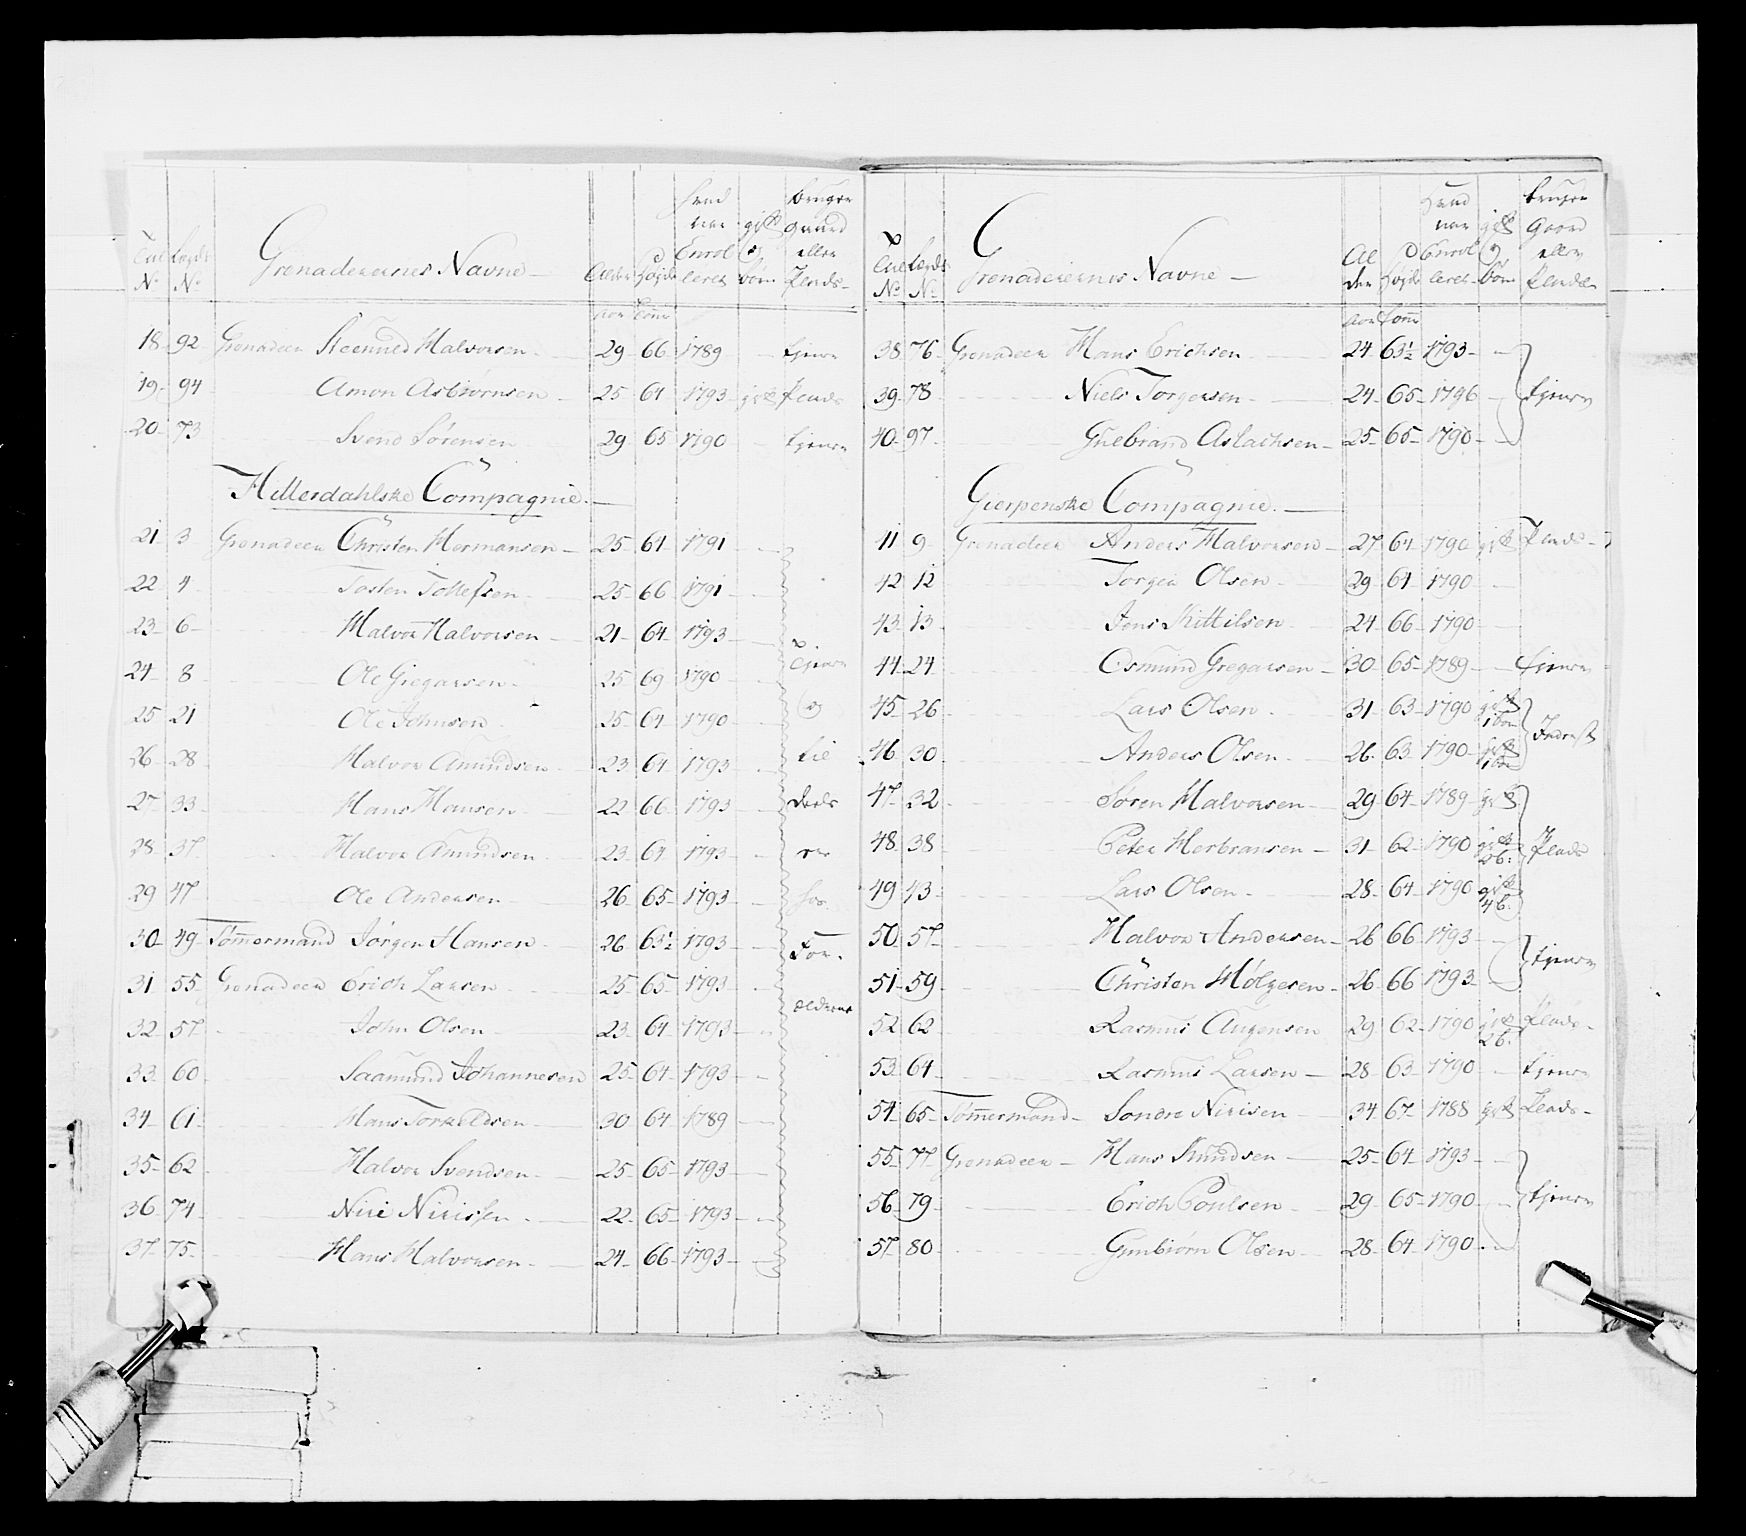 Grenaderernes Navne
18 92 Grenadeer Steenuld Halvorsen 29 66 1789 tjener
19 94 Amon Asbiørnsen 25 64 1793 gift Plads
20 73 Svend Sørensen 29 65 1790 tjener
Hitterdahlske Compagnie.
21 3 Grenadeer Christen Hermansen 25 64 1791
22 4 Tosten Tollefsen 25 66 1791
23 6 Halvor Halvorsen 21 64 1793
24 8 Ole Gregarsen 25 69 1790 tjener
25 21 Ole Johnsen 25 64 1790 og
26 28 Halvor Amundsen 23 64 1793 til
27 33 Hans Hansen 22 66 1793 deels
28 37 Halvor Amundsen 23 64 1793 er
29 47 Ole Andersen 26 65 1793 hos
30 49 Tømmermand Jørgen Hansen 26 63½ 1793 For-
31 55 Grenadeer Erich Larsen 25 65 1793 ældrene
32 57 John Olsen 23 64 1793
33 60 Saamund Johannesen 25 64 1793
34 61 Hans Torkeldsen 30 64 1789
35 62 Halvor Svendsen 25 65 1793
36 74 Niri Nirisen 22 65 1793
37 75 Hans Halvorsen 24 66 1793
Grenaderernes Navne
38 76 Grenadeer Hans Erichsen 24 63½ 1793
39 78 Niels Torgersen 24 65 1796 tjener
40 97 Gulbrand Aslachsen 25 65 1790
Gierpenske Compagnie.
41 9 Grenadeer Anders Halvorsen 27 64 1790 gift Plads
42 12 Torger Olsen 29 64 1790
43 13 Jens Kittilsen 24 66 1790
44 24 Osmund Gregarsen 30 65 1789 tjener
45 26 Lars Olsen 31 63 1790 gift 1 Barn Inderst
46 30 Anders Olsen 26 63 1790 gift 1 Barn
47 32 Søren Halvorsen 29 64 1789 gift
48 38 Peter Herbransen 31 62 1790 gift 2 b: Plads
49 43 Lars Olsen 28 64 1790 gift 4 b.
50 57 Halvor Andersen 26 66 1793 tjener
51 59 Christen Hølgesen 26 66 1793
52 62 Rasmus Augensen 29 62 1790 gift 2 b. Plads
53 64 Rasmus Larsen 28 63 1790 tjener
54 65 Tømmermand Sondre Nirisen 34 67 1788 gift Plads
55 77 Grenadeer Hans Knudsen 25 64 1793
56 79 Erich Poulsen 29 65 1790 tjener
57 80 Gunbiørn Olsen 28 64 1790